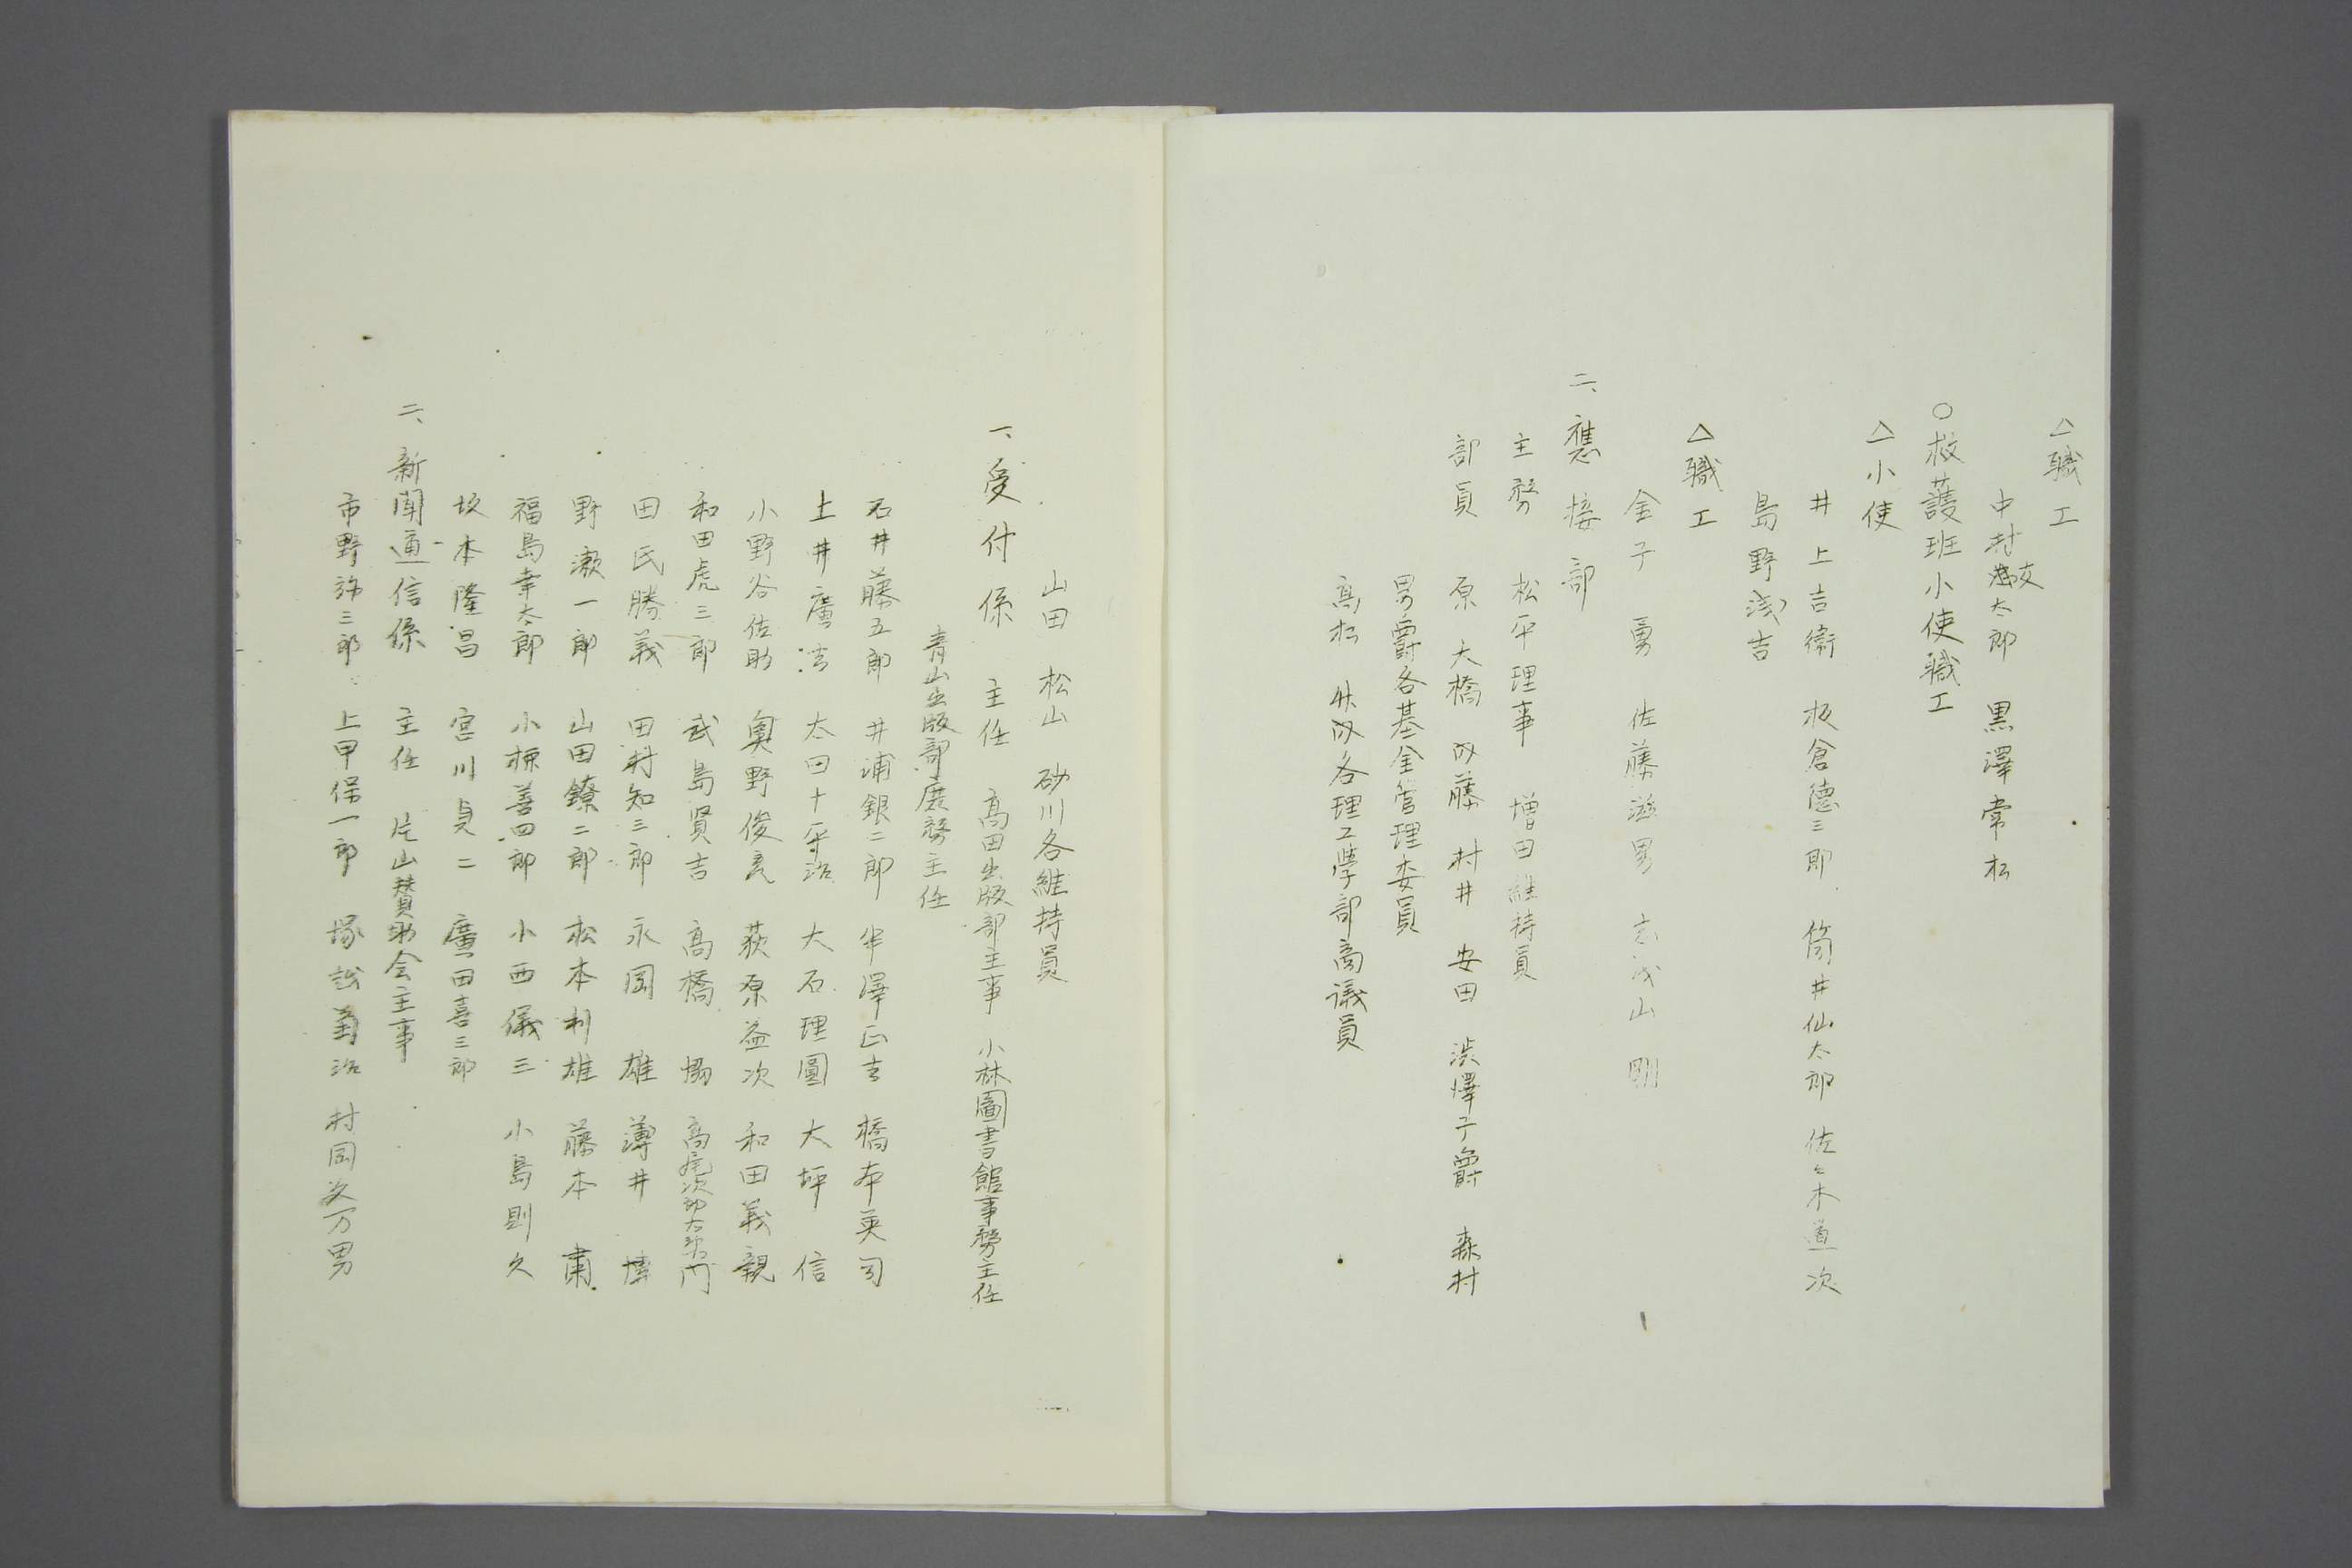 △職工
中村 太郎 黒澤常松
○救護班小使職工
△小使
井上吉衛 板倉徳三郎 筒井仙太郎 佐々木道次
島野浅吉
△職工
金子勇 佐藤滋男 山明
二、應接部
主務 松平理事 増田維持員
部員 原 大橋 内藤 村井 安田 渋澤子爵 森村
男爵各基金管理委員
高松 各理工学部商議員
山田 松山 砂川各維持員
一、受付係 主任 高田出版部主事 小林圖書館事務主任
青山出版部庶務主任
石井藤五郎 井浦銀二郎 半澤正吉 橋本英司
上井廣吉 太田十平治 大石理圓 大坪信
小野谷佐助 奥野俊亮 荻原益次 和田義親
和田虎三郎 武島賢吉 高橋 高尾次郎右衛門
田氏勝義 田村知三郎 永岡雄 薄井博
野瀬一郎 山田鐐二郎 松本利雄 藤本粛
福島幸太郎 小柳善四郎 小西儀三 小島則久
坂本隆昌 宮川貞二 廣田喜三郎
二、新聞通信係 主任 片山賛助会主事
市野弥三郎 上甲保一郎 塚 菊治 村岡 万男